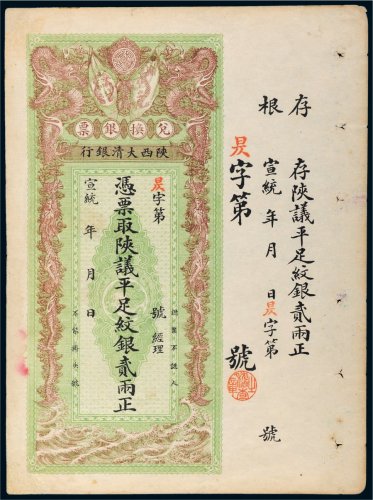 存根
存陝議平足紋銀貳兩正
宣統 年 月 日昃字第 號
昃字第 號
兌換銀票
陝西大清銀行
昃字第 號 經理
憑票取陝議平足紋銀貳兩正
宣統 年 月 日
認票不認人